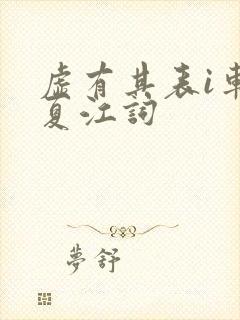 虛有其表i車
夏江詞
夢舒